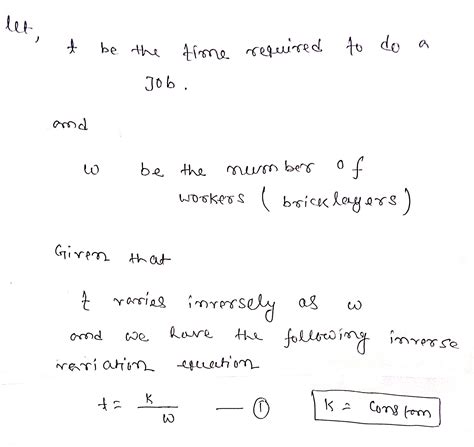 let,
t be the time required to do a
Job.
and
w be the number of
workers (bricklayers)
Given that
t varies inversely as w
and we have the following inverse
variation equation
t = K/w — ①
K = constan